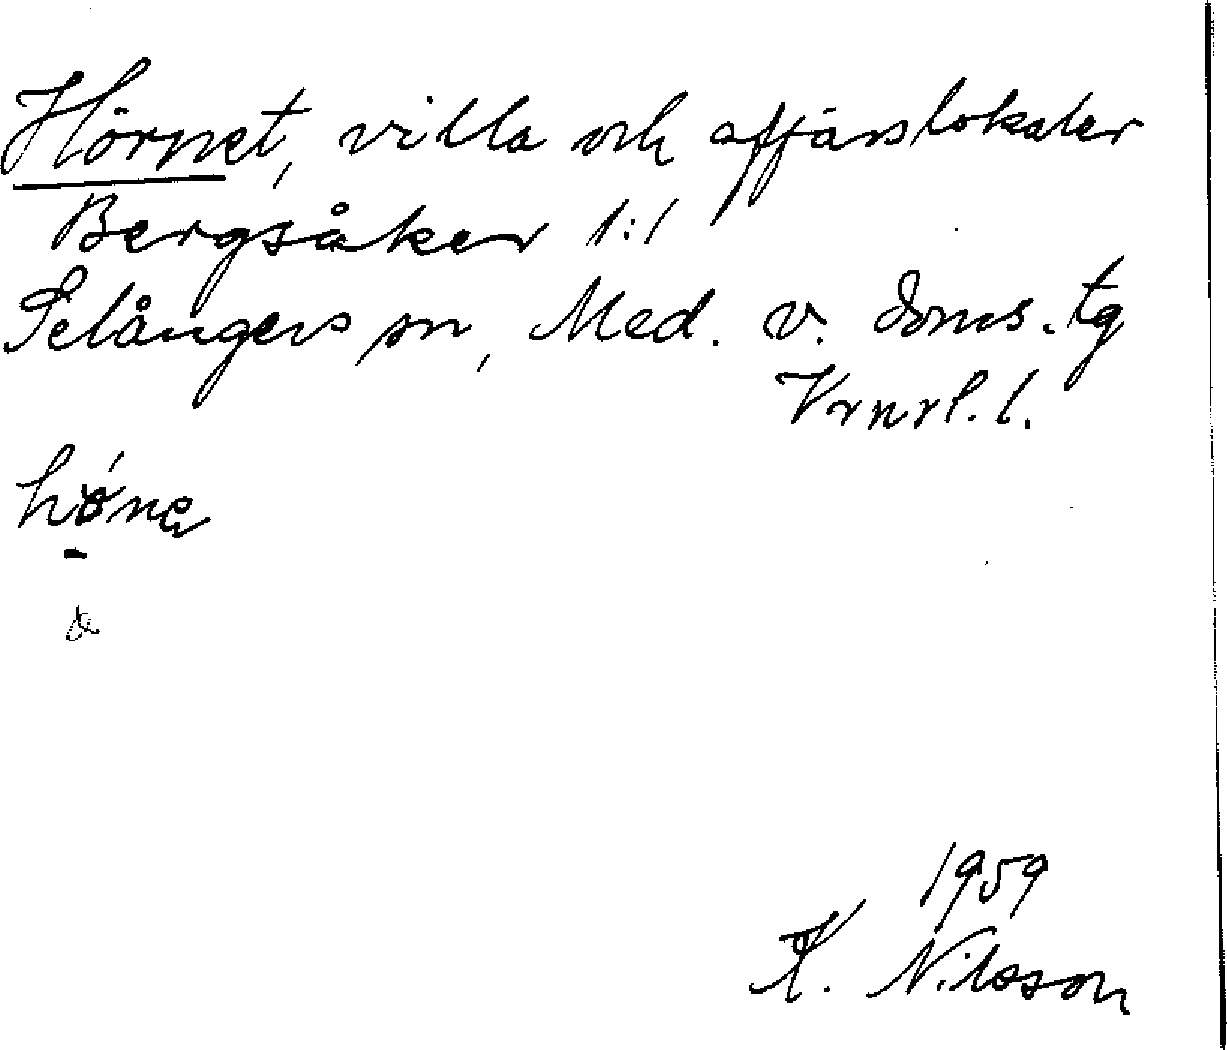 Hörnet, villa och affärslokaler
Bergsåker 1:1
Selångers sn, Med. v. doms. tg
Vrnrl. l.
1959
K. Nilsson